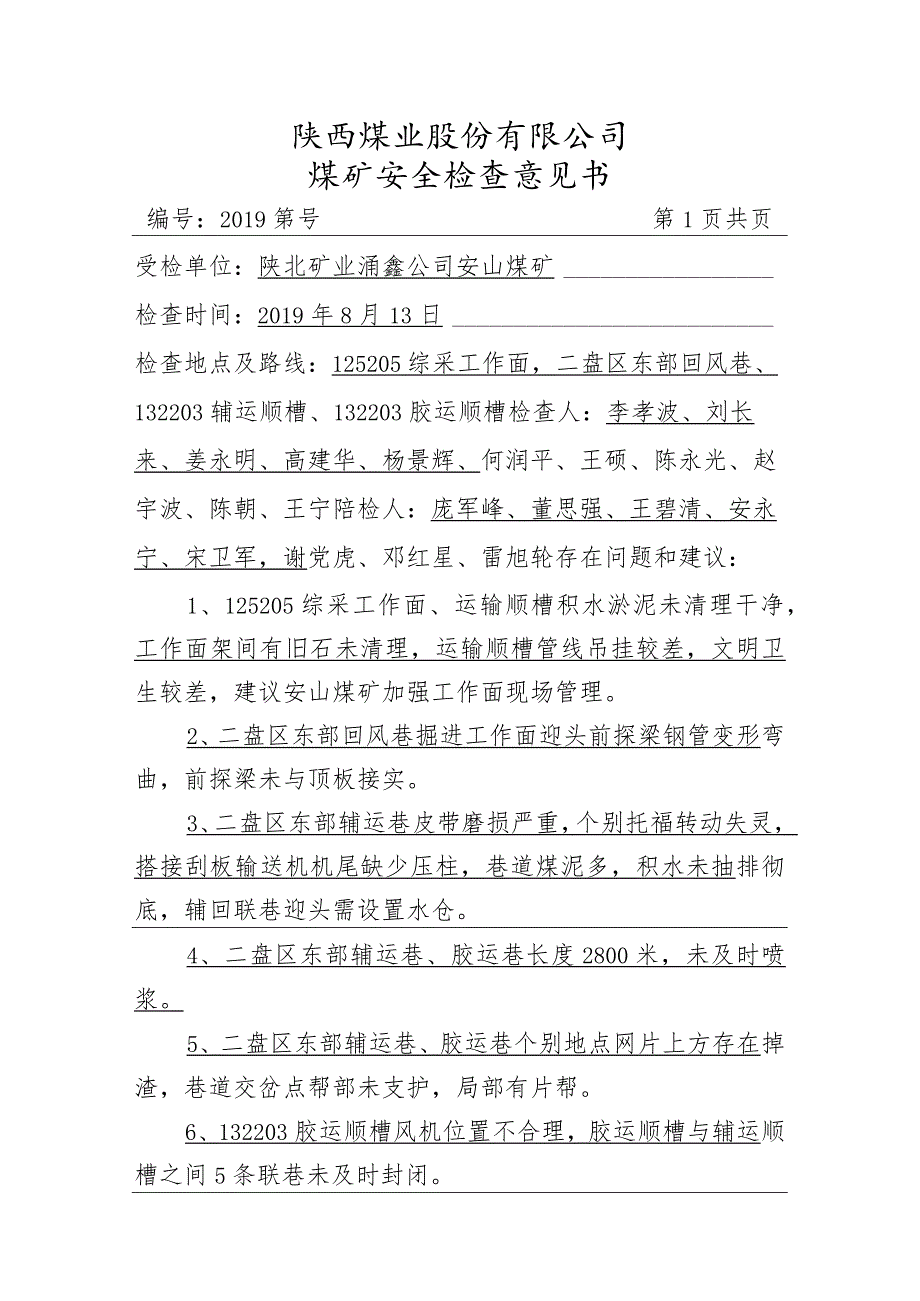 陕西煤业股份有限公司
煤矿安全检查意见书
编号：2019 第号 第 1 页共页
受检单位：陕北矿业涌鑫公司安山煤矿
检查时间：2019 年 8 月 13 日
检查地点及路线：125205 综采工作面，二盘区东部回风巷、
132203 辅运顺槽、132203 胶运顺槽检查人：李孝波、刘长
来、姜永明、高建华、杨景辉、何润平、王硕、陈永光、赵
宇波、陈朝、王宁陪检人：庞军峰、董思强、王碧清、安永
宁、宋卫军，谢党虎、邓红星、雷旭轮存在问题和建议：
1、125205 综采工作面、运输顺槽积水淤泥未清理干净，
工作面架间有旧石未清理，运输顺槽管线吊挂较差，文明卫
生较差，建议安山煤矿加强工作面现场管理。
2、二盘区东部回风巷掘进工作面迎头前探梁钢管变形弯
曲，前探梁未与顶板接实。
3、二盘区东部辅运巷皮带磨损严重，个别托福转动失灵，
搭接刮板输送机机尾缺少压柱，巷道煤泥多，积水未抽排彻
底，辅回联巷迎头需设置水仓。
4、二盘区东部辅运巷、胶运巷长度 2800 米，未及时喷
浆。
5、二盘区东部辅运巷、胶运巷个别地点网片上方存在掉
渣，巷道交岔点帮部未支护，局部有片帮。
6、132203 胶运顺槽风机位置不合理，胶运顺槽与辅运顺
槽之间 5 条联巷未及时封闭。